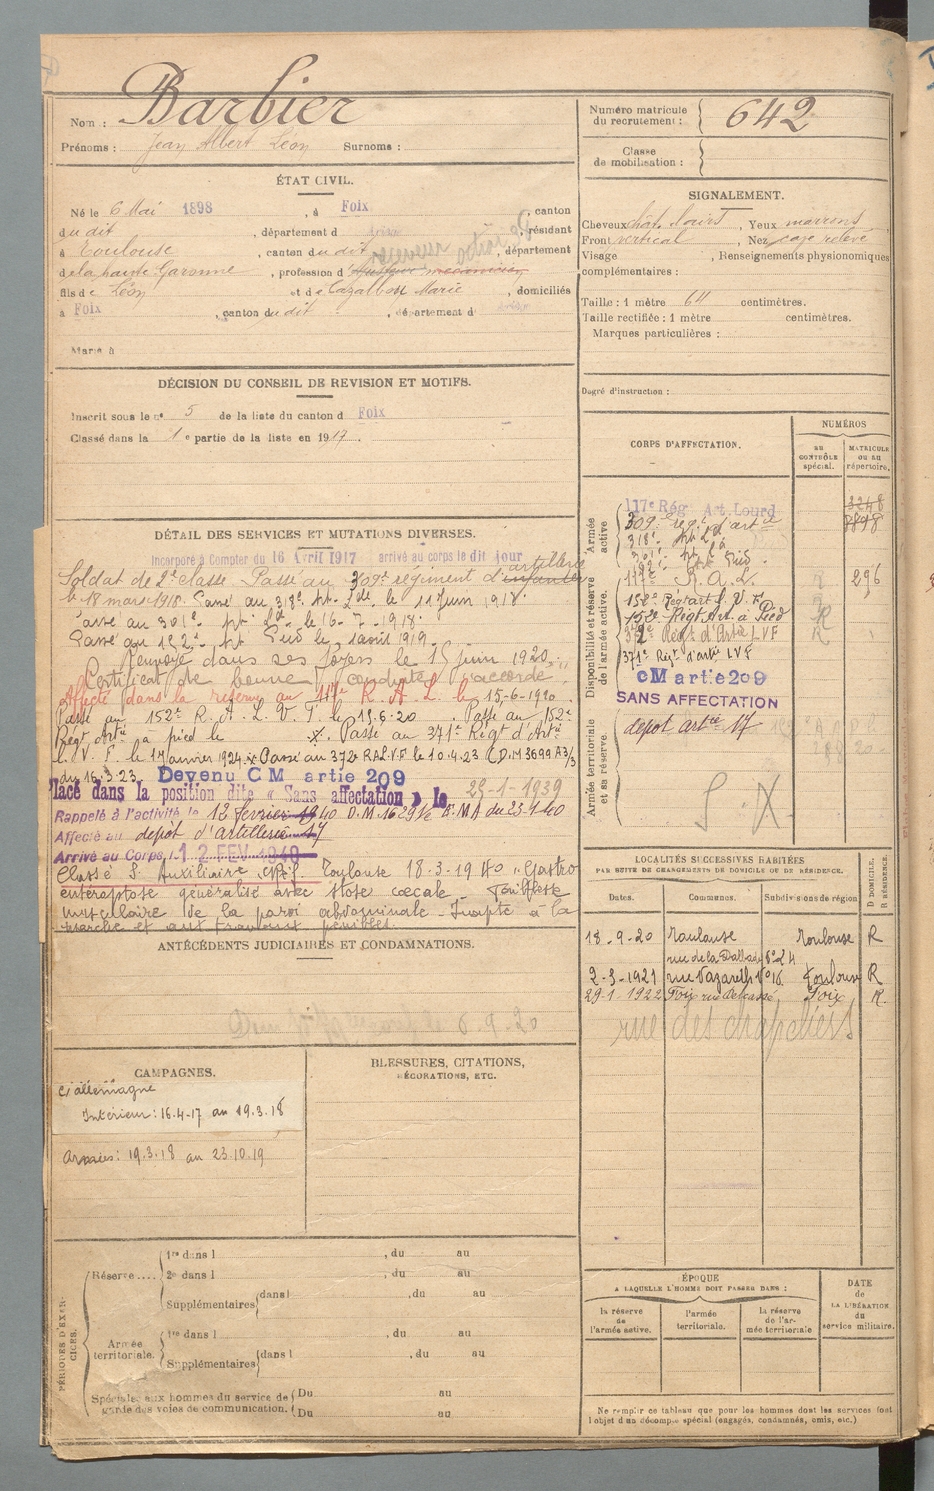 Nom : Barbier
Prénoms : Jean Albert Léon Surnoms :
ÉTAT CIVIL.
Né le 6 Mai 1898, à Foix, canton
du dit, département d, résidant
à Toulouse, canton du dit, département
de la haute Garonne, profession d
fils de Léon et de Cazalbou Marie, domiciliés
à Foix, canton du dit, département d
Marié à
DÉCISION DU CONSEIL DE REVISION ET MOTIFS.
Inscrit sous le n° 5 de la liste du canton d Foix
Classé dans la 1e partie de la liste en 1917.
DÉTAIL DES SERVICES ET MUTATIONS DIVERSES.
Incorporé à Compter du 16 Avril 1917 arrivé au corps le dit jour
artillerie
Soldat de 2e classe. Passé au 309e régiment d'infanterie
le 18 mars 1918. Passé au 318e rt. Lde. le 11 Juin 1918.
Passé au 301e rt. Ld. le 16-7-1918.
Passé au 152e rt. Pied le 1 août 1919.
Renvoyé dans ses foyers le 15 juin 1920
Certificat de bonne conduite accordé.
Affecté dans la réserve au 117e R.A.L. le 15-6-1920
Passé au 152e R.A.L.V.F. le 15.6.20. Passé au 152e
Régt Artie à pied le . Passé au 371e Régt d'Artie
L.V.F. le 1 Janvier 1924. Passé au 372e R.A.L.V.F le 10.4.23 (D.M 3699 A 3/3
du 16.3.23. Devenu C M artie 209
Placé dans la position dite « Sans affectation » le 25-1-1939
Rappelé à l'activité le 12 février 1940 D.M. E.M.A du 23-1-40
Affecté au dépôt d'Artillerie 17
Arrivé au Corps le 12 FEV. 1940
Classé S. Auxiliaire Toulouse 18-3-1940 "Gastro
entéroptose généralisé avec stase cœcale
musculaire de la paroi abdominale - Inapte à la
marche et aux travaux pénibles.
ANTÉCÉDENTS JUDICIAIRES ET CONDAMNATIONS.
6.9.20
CAMPAGNES.
C/allemagne
Intérieur : 16-4-17 au 19.3.18
Armées : 19.3.18 au 23.10.19
BLESSURES, CITATIONS,
DÉCORATIONS, ETC.
PÉRIODES D'EXERCICES.
Réserve....
1re dans l , du au
2e dans l , du au
Supplémentaires dans l , du au
Armée territoriale.
1re dans l , du au
Supplémentaires dans l , du au
Spéciales aux hommes du service de Du au
garde des voies de communication. Du au
Numéro matricule
du recrutement : 642
Classe
de mobilisation :
SIGNALEMENT.
Cheveux chât. clairs, Yeux marrons
Front vertical, Nez cave relevé
Visage, Renseignements physionomiques
complémentaires :
Taille : 1 mètre 64 centimètres.
Taille rectifiée : 1 mètre centimètres.
Marques particulières :
Degré d'instruction :
CORPS D'AFFECTATION.
NUMÉROS
AU CONTRÔLE spécial.
MATRICULE ou au répertoire.
Armée active
117e Rég Art. Lourd 3248
309e Régt d'artie 7898
318e rt Ld
301e rt Ld
152e rt Pied
Disponibilité et réserve de l'armée active.
117e R.A.L. 296
152e Régt art L.V.F
152e Régt Art. à Pied R
372e Régt d'Artie LVF R
371e Régt d'artie LVF
CM artie 209
SANS AFFECTATION
Armée territoriale et sa réserve.
dépôt artie 17
S. X
LOCALITÉS SUCCESSIVES HABITÉES
PAR SUITE DE CHANGEMENTS DE DOMICILE OU DE RÉSIDENCE.
Dates. Communes. Subdivisions de région
D DOMICILE. R RÉSIDENCE.
18-9-20 Toulouse Toulouse R
rue de la Dalbade N° 24
2-3-1921 rue Nazareth N° 16 Toulouse R
29-1-1922 Foix rue Delcassé Foix R.
rue des chapeliers
ÉPOQUE
A LAQUELLE L'HOMME DOIT PASSER DANS :
la réserve de l'armée active.
l'armée territoriale.
la réserve de l'armée territoriale
DATE de LA LIBÉRATION du service militaire.
Ne remplir ce tableau que pour les hommes dont les services font
l'objet d'un décompte spécial (engagés, condamnés, omis, etc.)